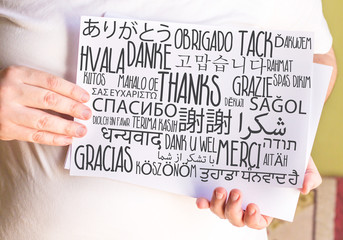 ありがとう OBRIGADO TACK ĎAKUJEM
HVALA DANKE 고맙습니다 RAHMAT
KIITOS MAHALO OE THANKS GRAZIE SPAS DIKIM
ΣΑΣ ΕΥΧΑΡΙΣΤΩ DĚKUJI SAĞOL
СПАСИБО 謝謝 شكرا
DIOLCH IN TAWR TERIMA KASIH תודה
धन्यवाद DANK U WEL MERCI AITÄH
GRACIAS با تشکر از شما
KÖSZÖNÖM ਤੁਹਾਡਾ ਧਨਵਾਦ ਹੈ